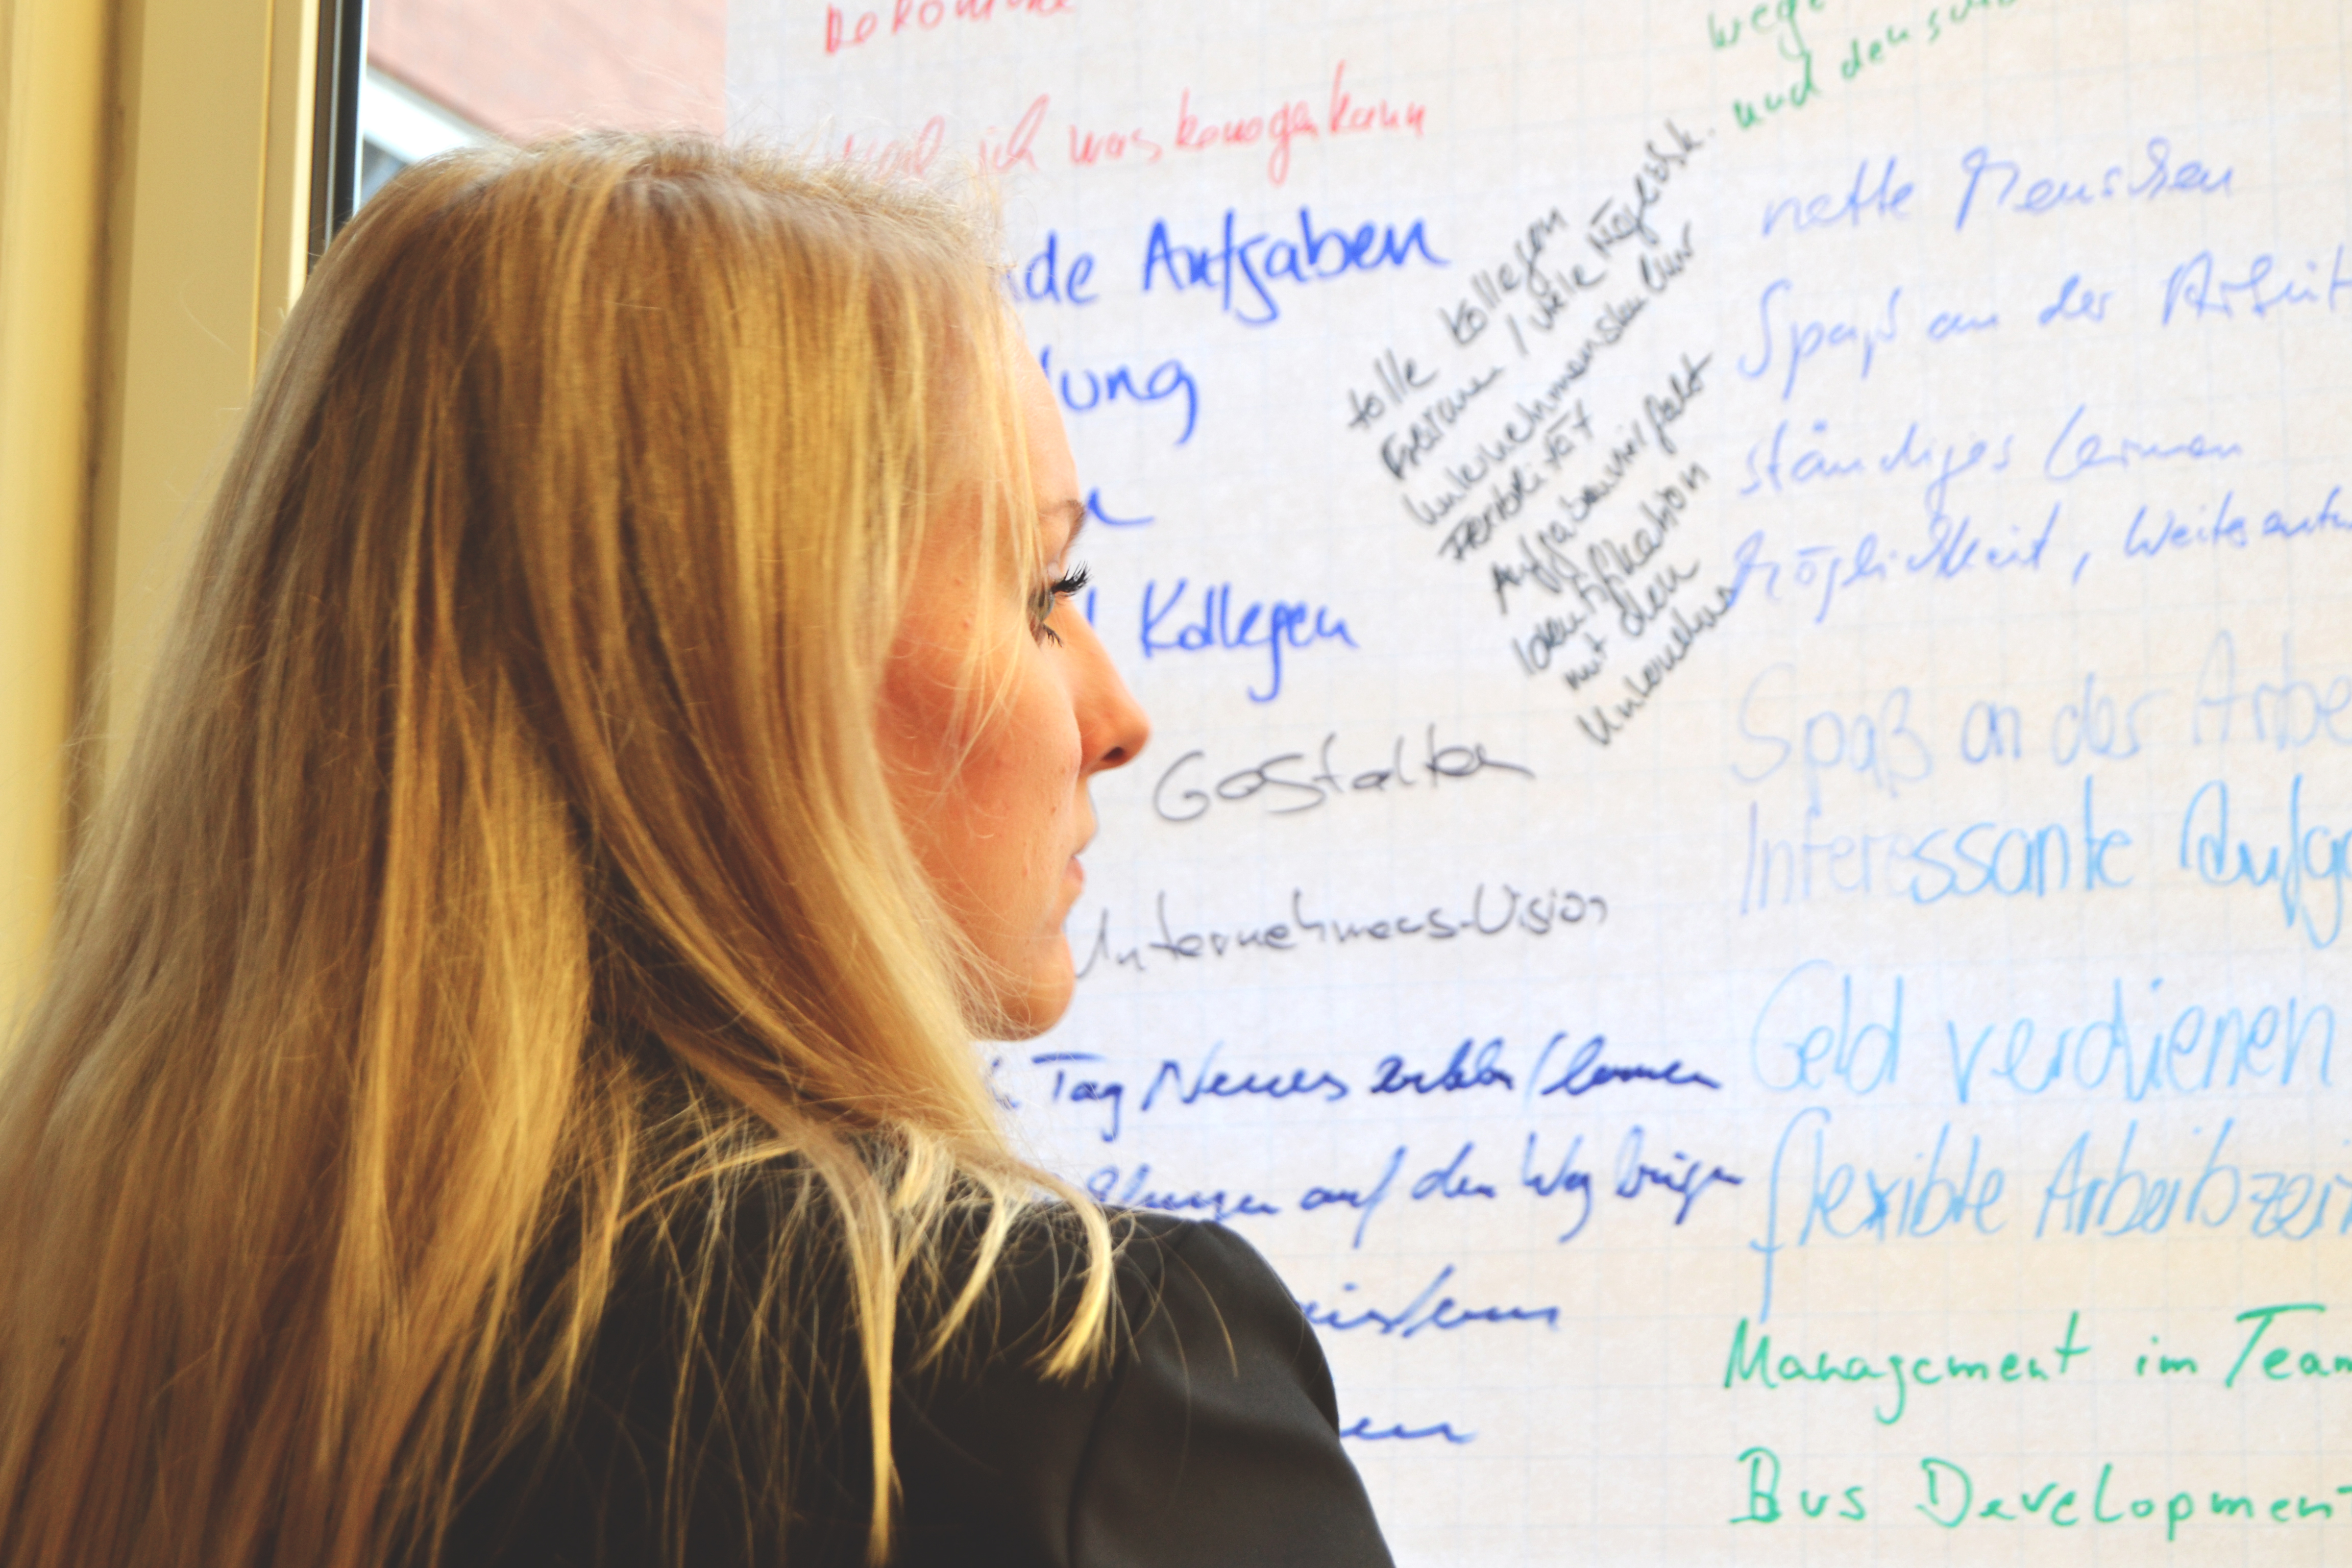 ich was bewegen kann
de Aufgaben
lung
Kollegen
Gestalten
Unternehmens-Vision
Tag Neues erleben / lernen
auf den Weg bringen
tolle Kollegen
Freiraum / viele Möglichk.
Unternehmenskultur
Flexibilität
Aufgabenvielfalt
Identifikation
mit dem
Unternehmen
wege
und den
nette Menschen
Spaß an der Arbeit
ständiges Lernen
Möglichkeit, Weiterentw
Spaß an der Arbe
Interessante Aufga
Geld verdienen
flexible Arbeitszei
Management im Team
Bus Development